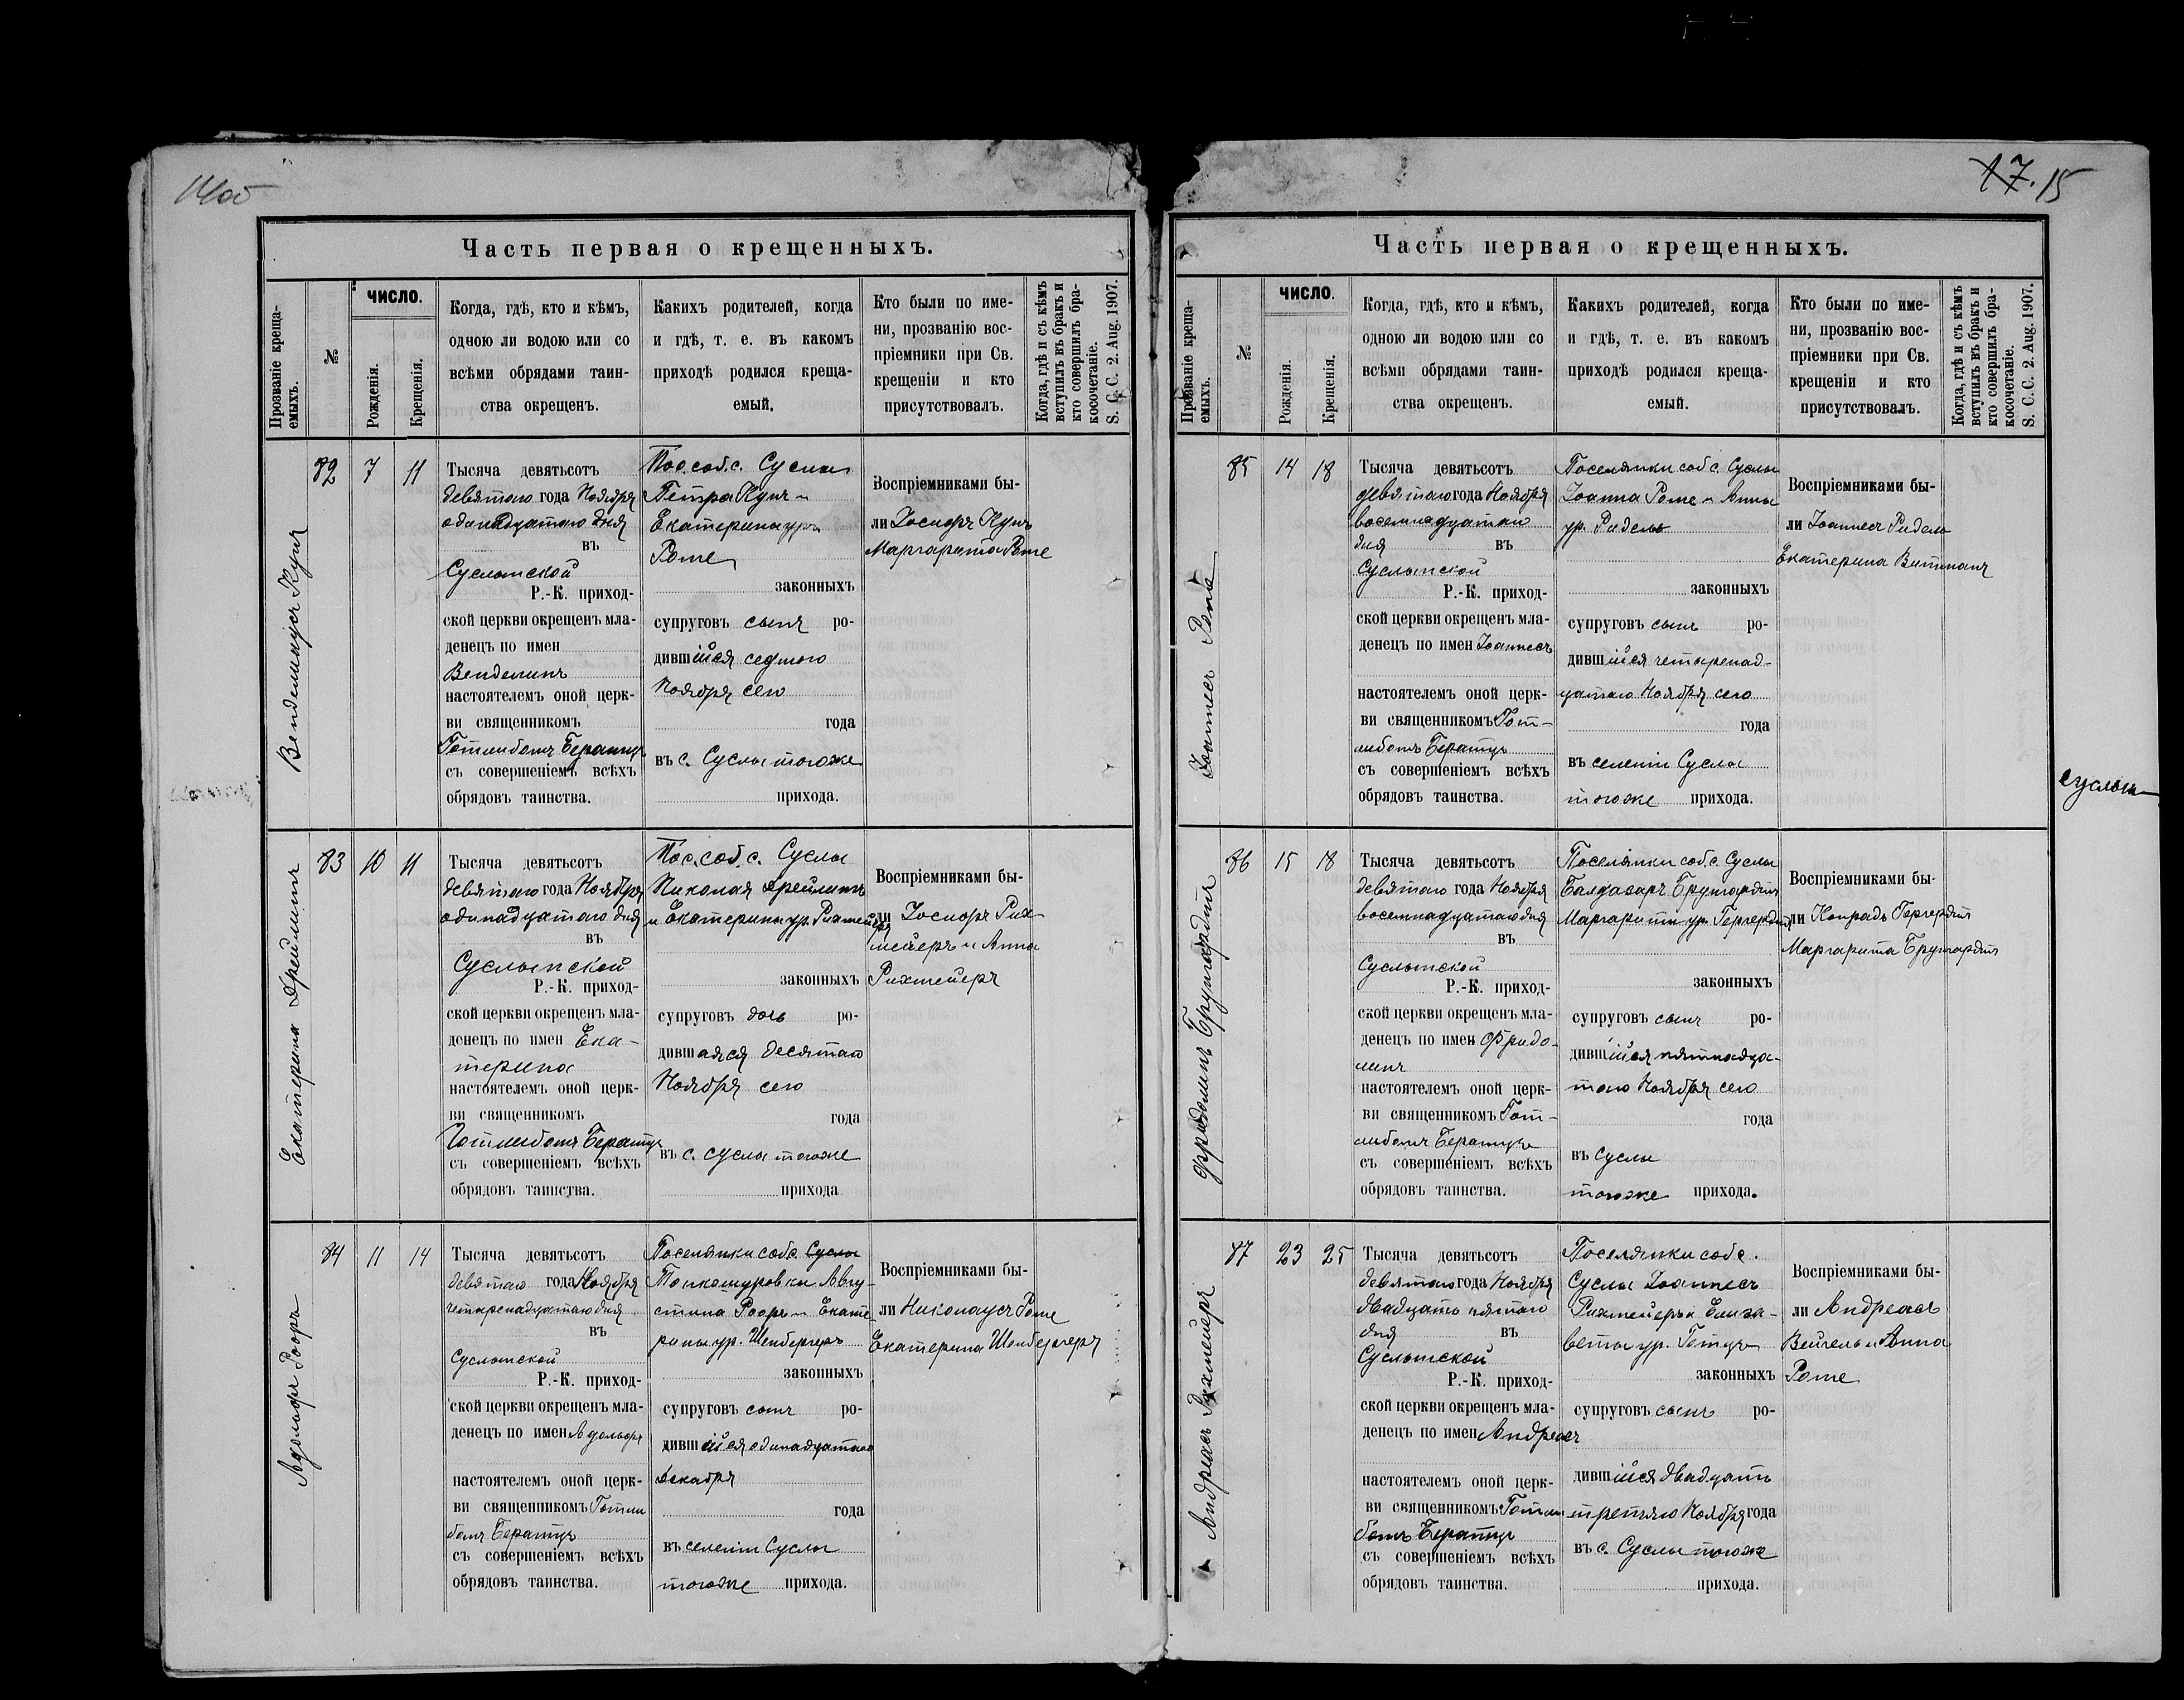 14об
Часть первая о крещенныхъ.
Прозваніе креща-
емыхъ.
№
ЧИСЛО.
Рожденія.
Крещенія.
Когда, гдѣ, кто и кѣмъ,
одною ли водою или со
всѣми обрядами таин-
ства окрещенъ.
Каких​ъ родителей, когда
и гдѣ, т. е. въ какомъ
приходѣ родился креща-
емый.
Кто были по име-
ни, прозванію вос-
пріемники при Св.
крещеніи и кто
присутствовалъ.
Когда, гдѣ и съ кѣмъ
вступилъ въ бракъ и
кто совершилъ бра-
косочетаніе.
S. C. C. 2. Aug. 1907.
82
7
11
Тысяча девятьсотъ
девятаго года Ноября
одинадцатаго дня
въ
Суслынской
Р.-К. приход-
ской церкви окрещенъ мла-
денецъ по имен
Венделинъ
настоятелемъ оной церк-
ви священникомъ
Готлибомъ Бератцъ
съ совершеніемъ всѣхъ
обрядовъ таинства.
Пос. соб. с. Суслы
Петра Кунъ и
Екатерины ур.
Роте
законныхъ
супруговъ сынъ ро-
дившійся седьмого
Ноября сего
года
въ с. Суслы тогоже
прихода.
Воспріемниками бы-
ли Іосифъ Кунъ
Маргарита Роте
Екатерина Дрейлингъ
83
10
11
Тысяча девятьсотъ
девятаго года Ноября
одинадцатаго дня
въ
Суслынской
Р.-К. приход-
ской церкви окрещенъ мла-
денецъ по имен Ека-
терина
настоятелемъ оной церк-
ви священникомъ
Готлибомъ Бератцъ
съ совершеніемъ всѣхъ
обрядовъ таинства.
Пос. соб. с. Суслы
Николая Дрейлингъ
и Екатерины ур. Рихмейеръ
законныхъ
супруговъ дочь ро-
дившаяся десятаго
Ноября сего
года
въ с. Суслы тогоже
прихода
Воспріемниками бы-
ли Іосифъ Рих-
мейеръ и Анна
Рихмейеръ
Адольфъ
84
11
14
Тысяча девятьсотъ
девятаго года Ноября
четыренадцатаго дня
въ
Суслынской
Р.-К. приход-
ской церкви окрещенъ мла-
денецъ по имен Адольфъ
настоятелемъ оной церк-
ви священникомъ Готли
бомъ Бератцъ
съ совершеніемъ всѣхъ
обрядовъ таинства.
Поселянки соб с. Суслы
Тонкошуровки Авгу-
стина и Екате-
рины ур. Шенбергеръ
законныхъ
супруговъ сынъ ро-
дившійся одинадцатаго
Декабря
года
въ селеніи Суслы
тогоже прихода.
Воспріемниками бы-
ли Николаусъ Роте
Екатерина Шенбергеръ
17. 15
Часть первая о крещенныхъ.
Прозваніе креща-
емыхъ.
№
ЧИСЛО.
Рожденія.
Крещенія.
Когда, гдѣ, кто и кѣмъ,
одною ли водою или со
всѣми обрядами таин-
ства окрещенъ.
Какихъ родителей, когда
и гдѣ, т. е. въ какомъ
приходѣ родился креща-
емый.
Кто были по име-
ни, прозванію вос-
пріемники при Св.
крещеніи и кто
присутствовалъ.
Когда, гдѣ и съ кѣмъ
вступилъ въ бракъ и
кто совершилъ бра-
косочетаніе.
S. C. C. 2. Aug. 1907.
Іоаннесъ
85
14
18
Тысяча девятьсотъ
девятаго года Ноября
восемнадцатаго
дня въ
Суслынской
Р.-К. приход-
ской церкви окрещенъ мла-
денецъ по имен Іоаннесъ
настоятелемъ оной церк-
ви священникомъ Гот-
либомъ Бератцъ
съ совершеніемъ всѣхъ
обрядовъ таинства.
Поселянки соб с. Суслы
Іоанна Роте и Анны
ур. Ридель
законныхъ
супруговъ сынъ ро-
дившійся четыренад-
цатаго Ноября сего
года
въ селеніи Суслы
тогоже прихода.
Воспріемниками бы-
ли Іоаннесъ Ридель
Екатерина Витманъ
Суслы
Фридолинъ Брунгардтъ
86
15
18
Тысяча девятьсотъ
девятаго года Ноября
восемнадцатаго дня
въ
Суслынской
Р.-К. приход-
ской церкви окрещенъ мла-
денецъ по имен Фридо-
линъ
настоятелемъ оной церк-
ви священникомъ Гот-
либомъ Бератцъ
съ совершеніемъ всѣхъ
обрядовъ таинства.
Поселянки соб. с. Суслы
Балдазаръ Брунгардтъ
Маргариты ур. Гергердтъ
законныхъ
супруговъ сынъ ро-
дившійся пятнадца-
таго Ноября сего
года
въ Суслы
тогоже прихода.
Воспріемниками бы-
ли Конрадъ Гергердтъ
Маргарита Брунгардтъ
Андреасъ Рихмейеръ
87
23
25
Тысяча девятьсотъ
девятаго года Ноября
двадцать пятаго
дня въ
Суслынской
Р.-К. приход-
ской церкви окрещенъ мла-
денецъ по имен Андреасъ
настоятелемъ оной церк-
ви священникомъ Готли
бомъ Бератцъ
съ совершеніемъ всѣхъ
обрядовъ таинства.
Поселянки соб с.
Суслы Іоаннесъ
Рихмейеръ и Елиза-
веты ур. Гетцъ
законныхъ
супруговъ сынъ ро-
дившійся двадцать
третьяго Ноября года
въ с. Суслы тогоже
прихода.
Воспріемниками бы-
ли Андреасъ
Вейгель и Анна
Роте